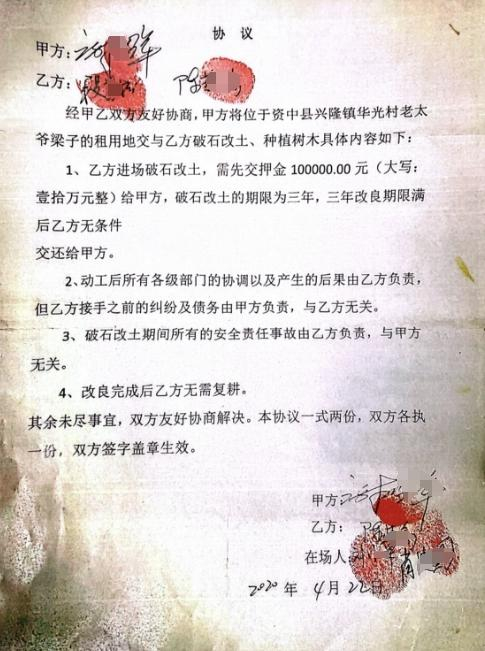 协 议
甲方:
乙方:
经甲乙双方友好协商，甲方将位于资中县兴隆镇华光村老太
爷梁子的租用地交与乙方破石改土、种植树木具体内容如下：
1、乙方进场破石改土，需先交押金 100000.00 元（大写：
壹拾万元整）给甲方，破石改土的期限为三年，三年改良期限满
后乙方无条件
交还给甲方。
2、动工后所有各级部门的协调以及产生的后果由乙方负责，
但乙方接手之前的纠纷及债务由甲方负责，与乙方无关。
3、破石改土期间所有的安全责任事故由乙方负责，与甲方
无关。
4、改良完成后乙方无需复耕。
其余未尽事宜，双方友好协商解决。本协议一式两份，双方各执
一份，双方签字盖章生效。
甲方:
乙方:
在场人
2020 年 4 月 22日